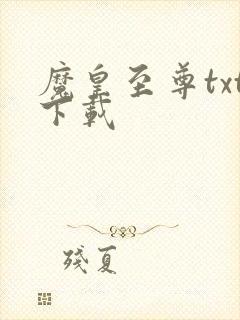 魔皇至尊txt
下載
殘夏